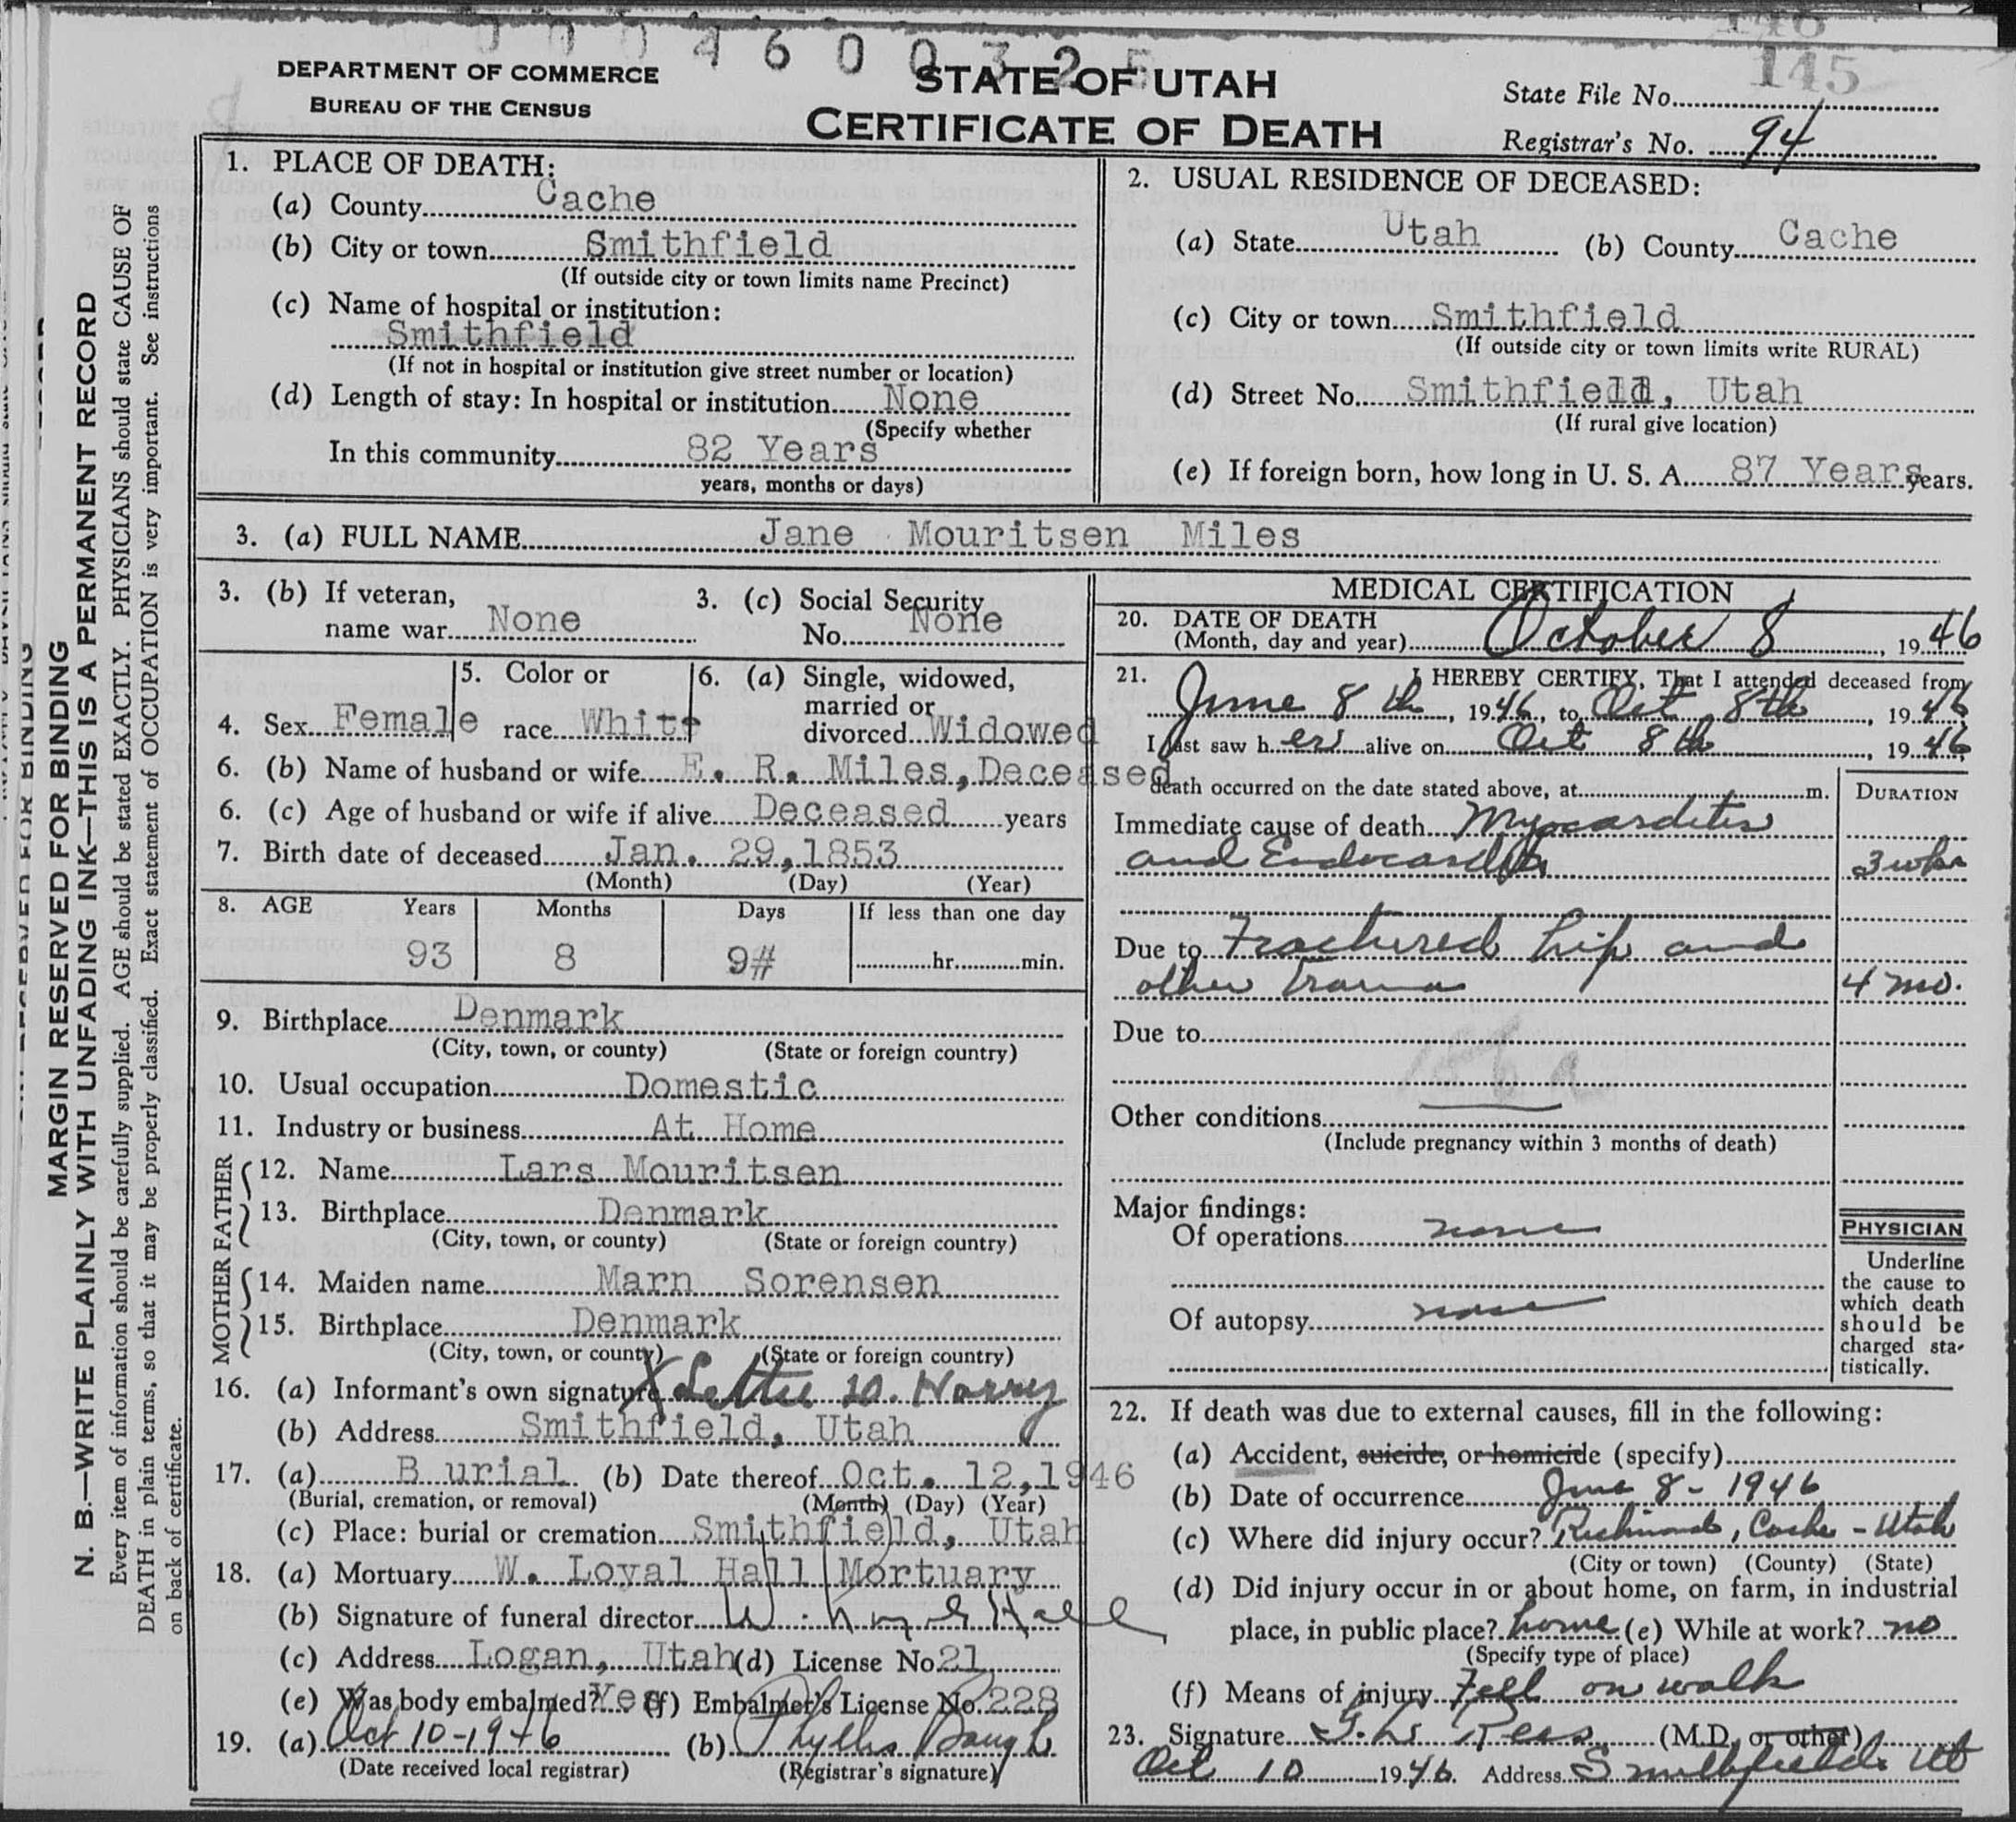 0004600325
DEPARTMENT OF COMMERCE
BUREAU OF THE CENSUS
STATE OF UTAH
CERTIFICATE OF DEATH
145
State File No.
Registrar's No. 94
MARGIN RESERVED FOR BINDING
N. B.—WRITE PLAINLY WITH UNFADING INK—THIS IS A PERMANENT RECORD
Every item of information should be carefully supplied. AGE should be stated EXACTLY. PHYSICIANS should state CAUSE OF
DEATH in plain terms, so that it may be properly classified. Exact statement of OCCUPATION is very important. See instructions
on back of certificate.
1. PLACE OF DEATH:
(a) County Cache
(b) City or town Smithfield
(If outside city or town limits name Precinct)
(c) Name of hospital or institution:
Smithfield
(If not in hospital or institution give street number or location)
(d) Length of stay: In hospital or institution None
(Specify whether
In this community 82 Years
years, months or days)
2. USUAL RESIDENCE OF DECEASED:
(a) State Utah (b) County Cache
(c) City or town Smithfield
(If outside city or town limits write RURAL)
(d) Street No. Smithfield, Utah
(If rural give location)
(e) If foreign born, how long in U. S. A. 87 Years years.
3. (a) FULL NAME Jane Mouritsen Miles
3. (b) If veteran,
name war None
3. (c) Social Security
No. None
4. Sex Female
5. Color or
race White
6. (a) Single, widowed,
married or
divorced Widowed
6. (b) Name of husband or wife E. R. Miles, Deceased
6. (c) Age of husband or wife if alive Deceased years
7. Birth date of deceased Jan. 29, 1853
(Month) (Day) (Year)
8. AGE Years Months Days If less than one day
93 8 9# hr. min.
9. Birthplace Denmark
(City, town, or county) (State or foreign country)
10. Usual occupation Domestic
11. Industry or business At Home
FATHER
12. Name Lars Mouritsen
13. Birthplace Denmark
(City, town, or county) (State or foreign country)
MOTHER
14. Maiden name Marn Sorensen
15. Birthplace Denmark
(City, town, or county) (State or foreign country)
16. (a) Informant's own signature X Lettie M. Harry
(b) Address Smithfield, Utah
17. (a) Burial (b) Date thereof Oct. 12, 1946
(Burial, cremation, or removal) (Month) (Day) (Year)
(c) Place: burial or cremation Smithfield, Utah
18. (a) Mortuary W. Loyal Hall Mortuary
(b) Signature of funeral director W. Loyal Hall
(c) Address Logan, Utah (d) License No. 21
(e) Was body embalmed? Yes (f) Embalmer's License No. 228
19. (a) Oct 10-1946 (b) Phyllis Baugh
(Date received local registrar) (Registrar's signature)
MEDICAL CERTIFICATION
20. DATE OF DEATH
(Month, day and year) October 8, 1946
21. I HEREBY CERTIFY, That I attended deceased from
June 8th, 1946, to Oct 8th, 1946
I last saw her alive on Oct 8th 1946,
death occurred on the date stated above, at m.
DURATION
Immediate cause of death Myocarditis
and Endocarditis 3 wks
Due to Fractured hip and
other trauma 4 mo.
Due to
186a
Other conditions
(Include pregnancy within 3 months of death)
Major findings:
Of operations none
Of autopsy none
PHYSICIAN
Underline
the cause to
which death
should be
charged sta-
tistically.
22. If death was due to external causes, fill in the following:
(a) Accident, suicide, or homicide (specify)
(b) Date of occurrence June 8 - 1946
(c) Where did injury occur? Richmond, Cache - Utah
(City or town) (County) (State)
(d) Did injury occur in or about home, on farm, in industrial
place, in public place? home (e) While at work? no
(Specify type of place)
(f) Means of injury Fell on walk
23. Signature G. L. Rees (M.D. or other)
Oct 10 1946. Address Smithfield Ut